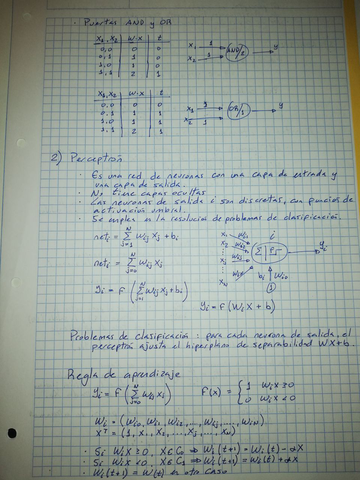 · Puertas AND y OR
X₁, X₂ | W·X | t
0,0 | 0 | 0
0,1 | 1 | 0
1,0 | 1 | 0
1,1 | 2 | 1
X₁ 1
X₂ 1
AND/2
y
X₁, X₂ | W·X | t
0,0 | 0 | 0
0,1 | 1 | 1
1,0 | 1 | 1
1,1 | 2 | 1
X₁ 1
X₂ 1
OR/1
y
2) Perceptrón
· Es una red, de neuronas con una capa de entrada y
una capa de salida.
· No tiene capas ocultas
· Las neuronas de salida i son discretas, con función de
activación umbral.
· Se emplea en la resolución de problemas de clasificación.
netᵢ = Σ_{j=1}^{N} Wᵢⱼ Xⱼ + bᵢ
netᵢ = Σ_{j=0}^{N} Wᵢⱼ Xⱼ
yᵢ = F (Σ_{j=1}^{N} Wᵢⱼ Xⱼ + bᵢ)
yᵢ = F (WᵢX + b)
Problemas de clasificación: para cada neurona de salida, el
perceptrón ajusta el hiperplano de separabilidad WX+b.
Regla de aprendizaje
yᵢ = F (Σ_{j=0}^{N} Wᵢⱼ Xⱼ)
F(x) = { 1 WᵢX ≥ 0
0 WᵢX < 0
Wᵢ = (Wᵢ₀, Wᵢ₁, Wᵢ₂, ..., Wᵢⱼ, ..., WᵢN)
Xᵀ = (1, X₁, X₂, ..., Xⱼ, ..., XN)
· Si WᵢX ≥ 0, X∈C₀ ⇒ Wᵢ(t+1) = Wᵢ(t) - αX
· Si WᵢX < 0, X∈C₁ ⇒ Wᵢ(t+1) = Wᵢ(t) + αX
· Wᵢ(t+1) = W(t) en otro caso